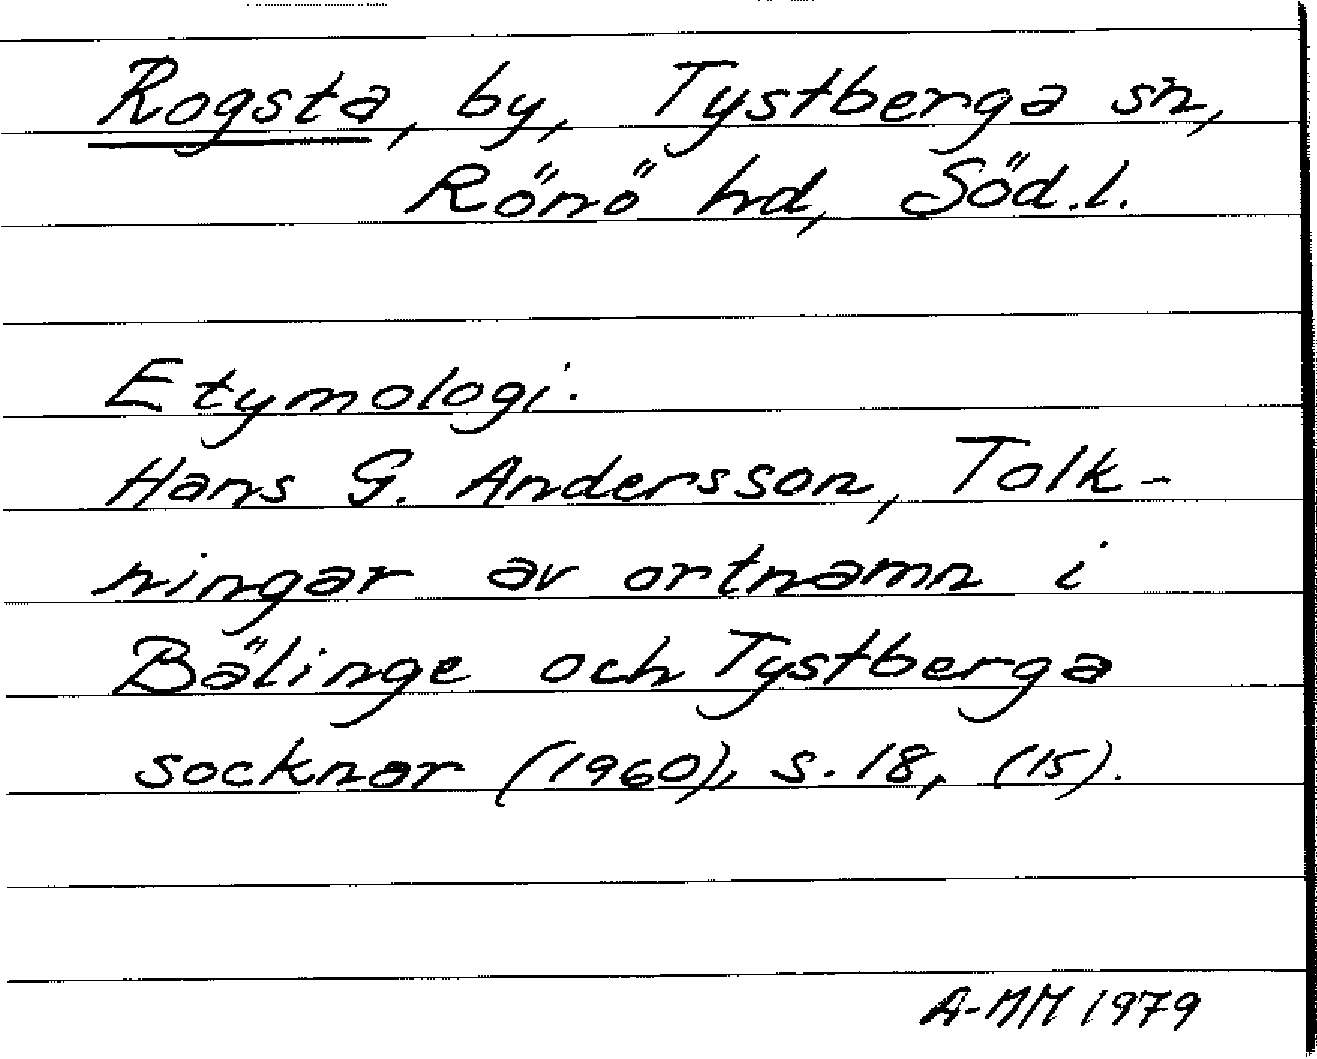 Rogsta, by, Tystberga sn,
Rönö hd, Söd.l.
Etymologi.
Hans G. Andersson, Tolk-
ningar av ortnamn i
Bälinge och Tystberga
socknar (1960), s. 18, (15).
A-MM 1979